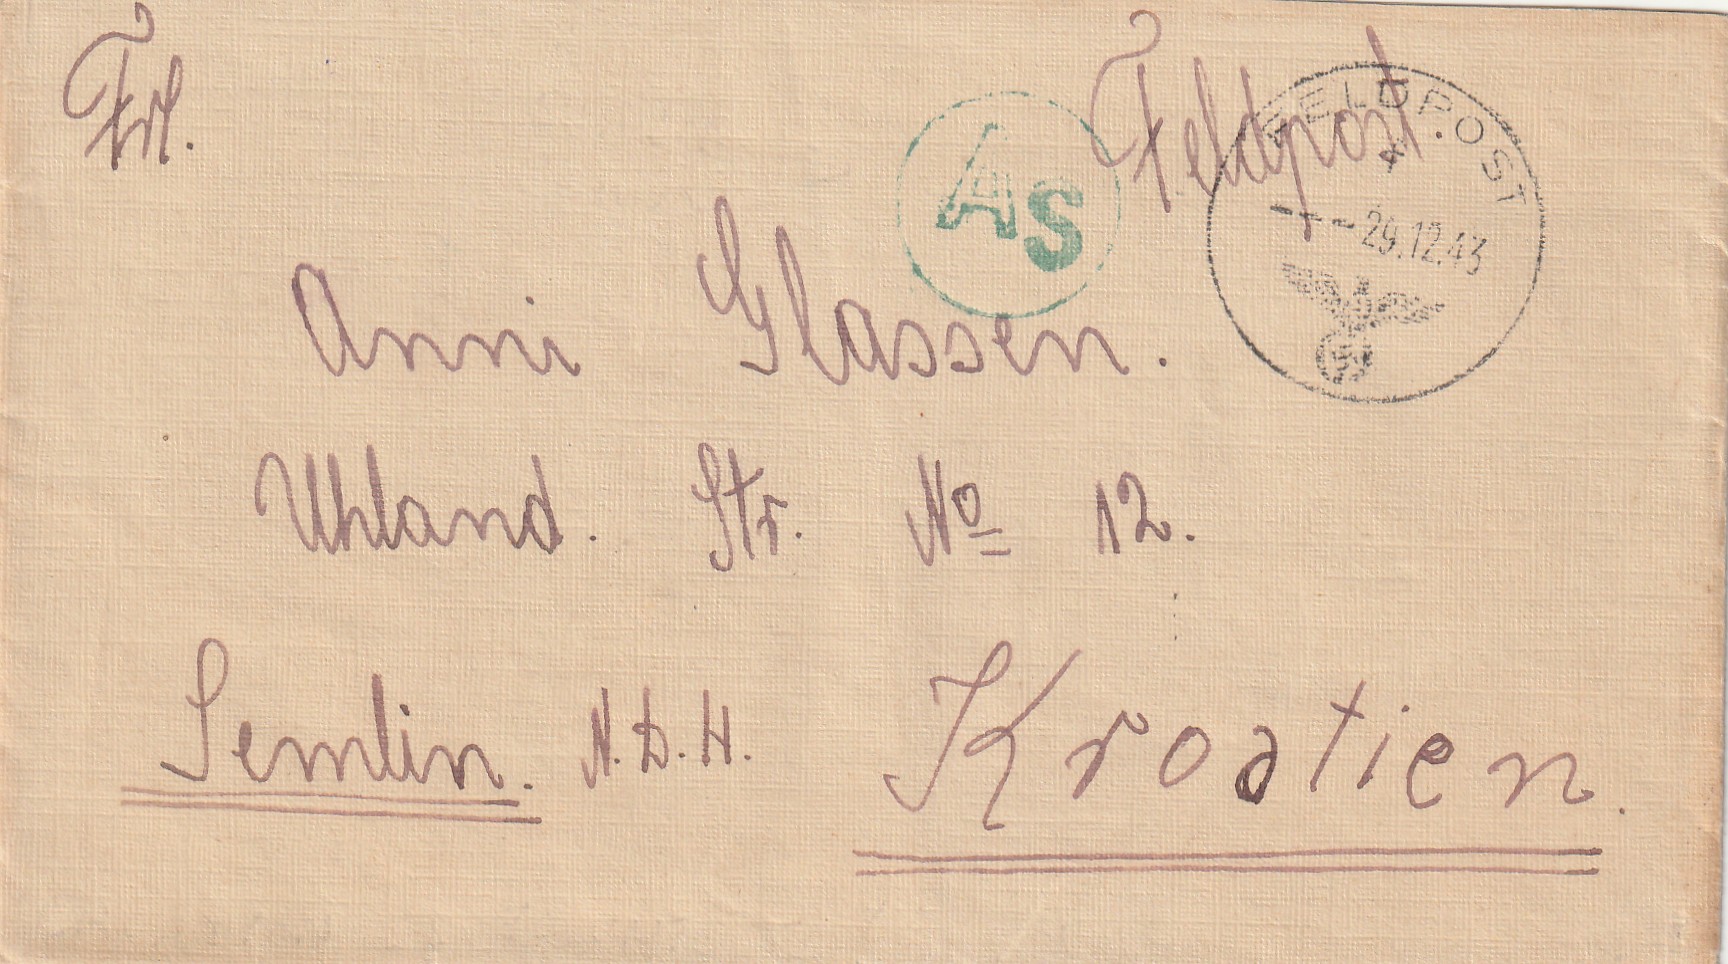 Frl.
Feldpost.
FELDPOST
29.12.43
As
Anni Glassen.
Uhland. Str. No 12.
Semlin. N.D.H. Kroatien.